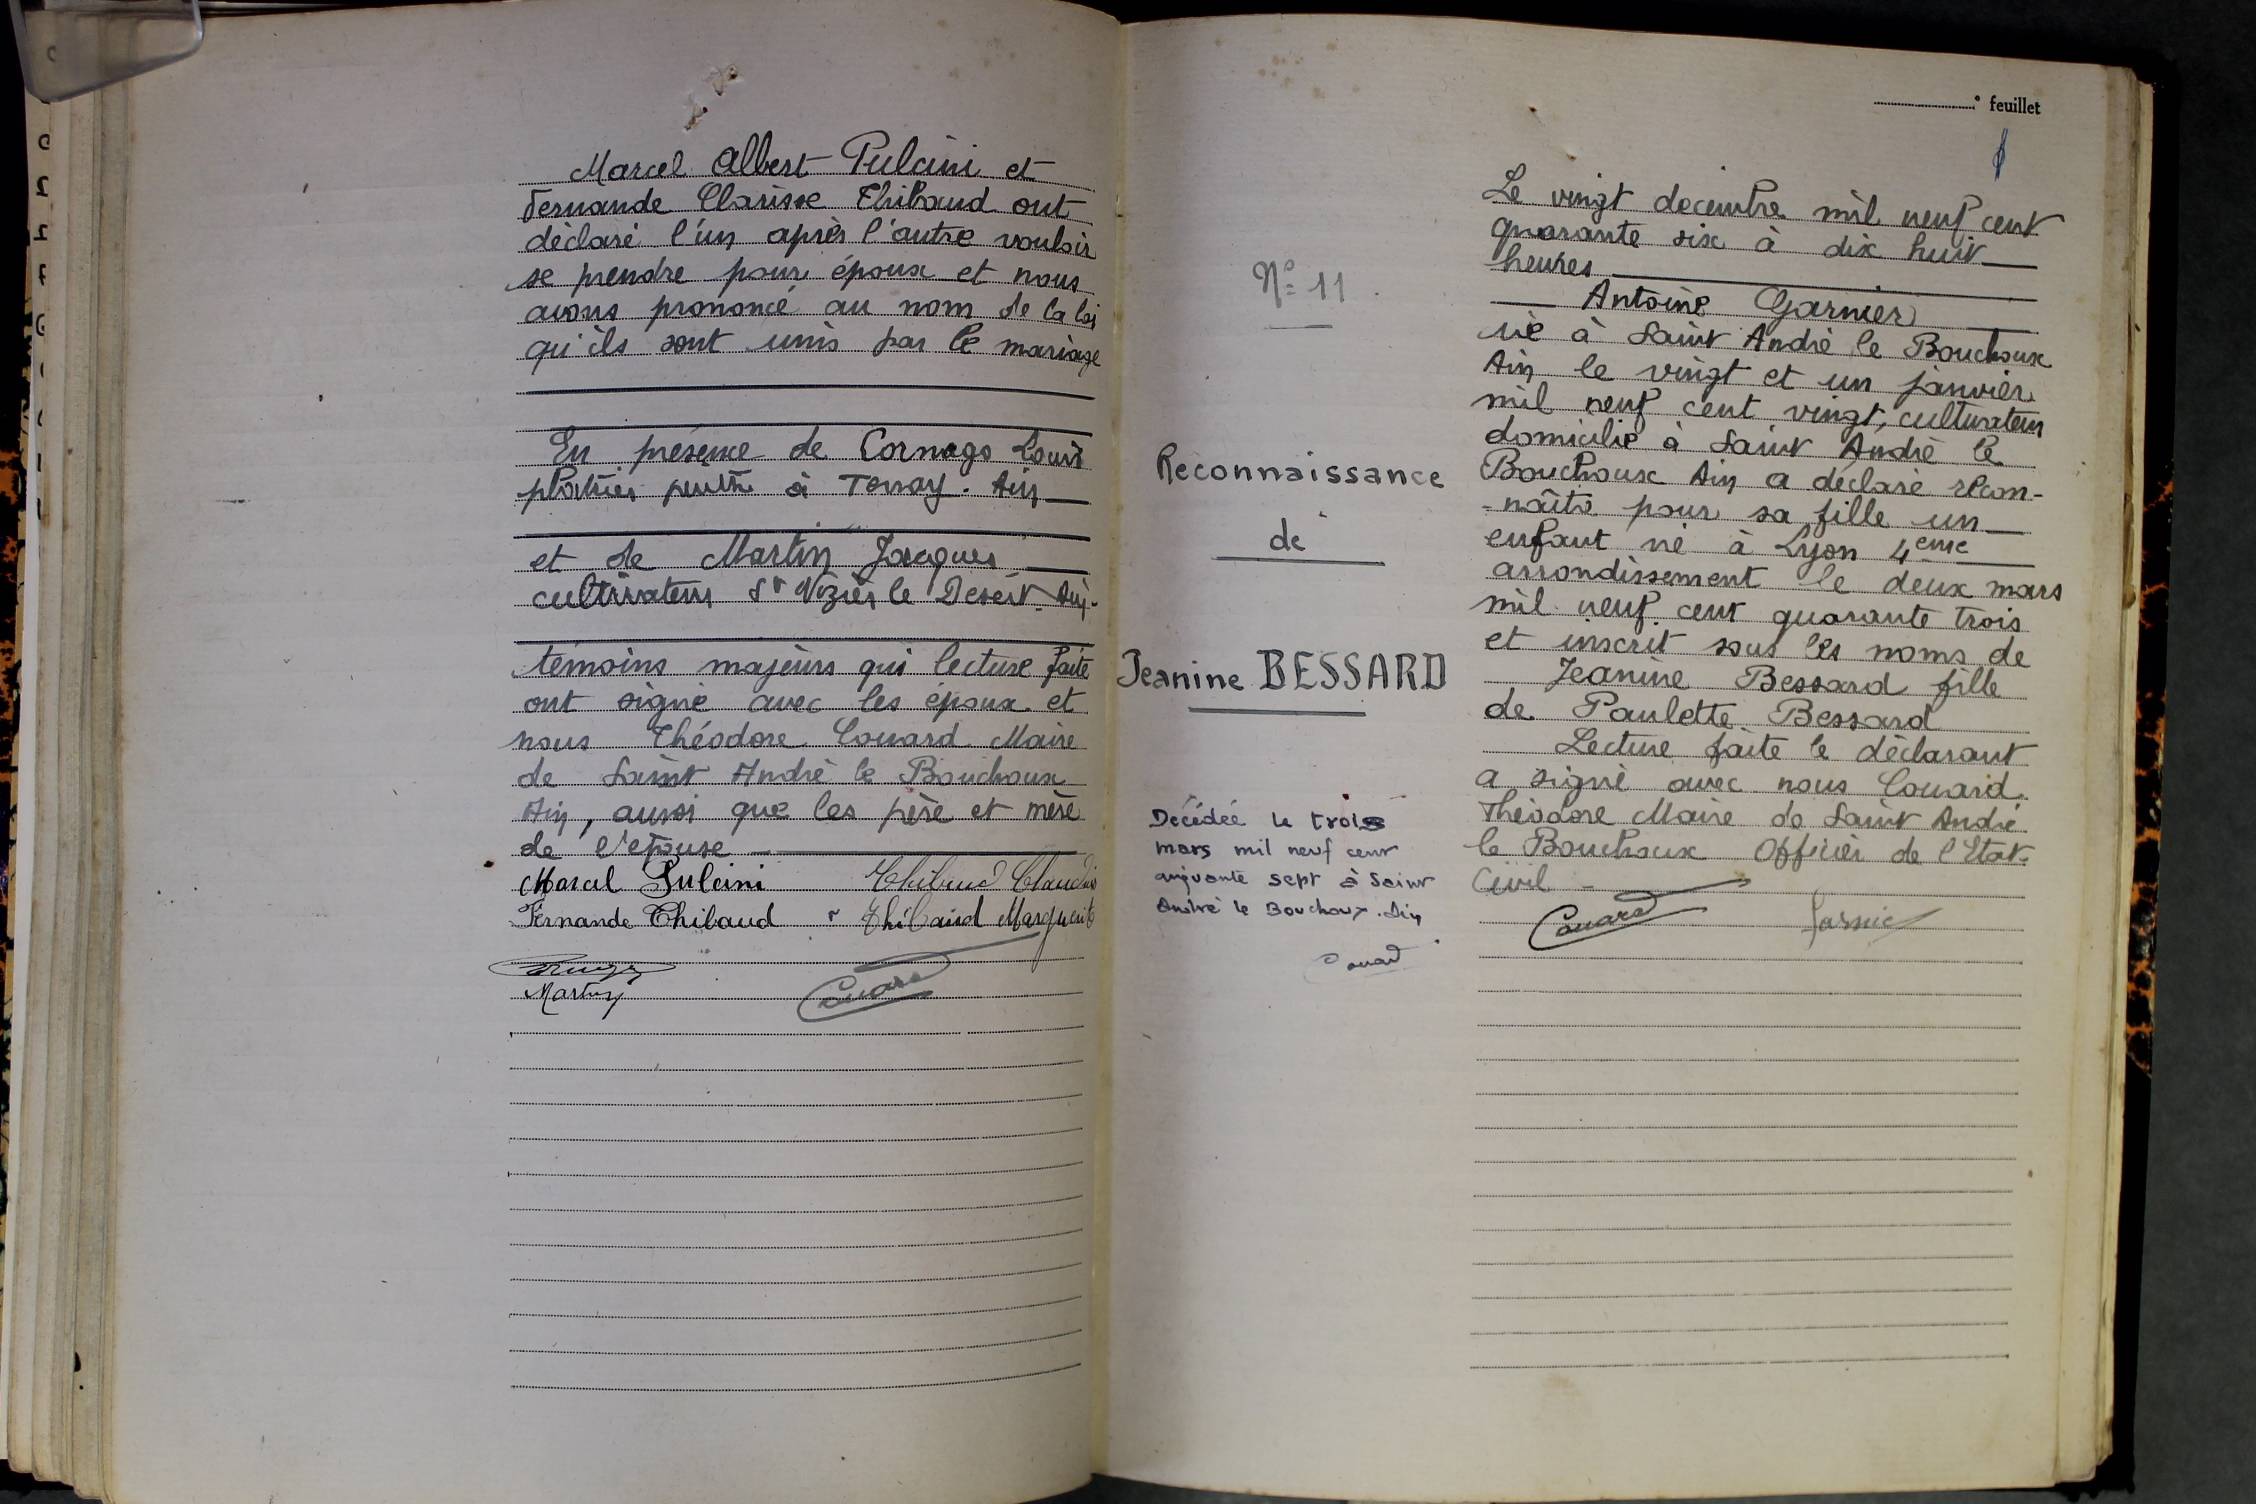 Marcel Albert Pulcini et
Fernande Clarisse Thibaud ont
déclaré l'un après l'autre vouloir
se prendre pour époux et nous
avons prononcé au nom de la loi
qu'ils sont unis par le mariage
En présence de Cornago Louis
plâtrier peintre à Tenay. Ain
et de Martin Jacques
cultivateur St Nizier le Desért. Ain.
témoins majeurs qui lecture faite
ont signé avec les époux et
nous Théodore Couard Maire
de Saint André le Bouchoux
Ain, aussi que les père et mère
de l'épouse
Marcel Pulcini Thibaud Claudius
Fernande Thibaud Thibaud Marguerite
Martin Couard
° feuillet
N° 11.
Reconnaissance
de
Jeanine BESSARD
Décédée le trois
mars mil neuf cent
cinquante sept à Saint
André le Bouchoux. Ain
Couard
Le vingt decembre mil neuf cent
quarante six à dix huit
heures
Antoine Garnier
né à Saint André le Bouchoux
Ain le vingt et un janvier
mil neuf cent vingt, cultivateur
domicilié à Saint André le
Bouchoux Ain a déclaré recon-
-naître pour sa fille un
enfant né à Lyon 4eme
arrondissement le deux mars
mil neuf cent quarante trois
et inscrit sous les noms de
Jeanine Bessard fille
de Paulette Bessard
Lecture faite le déclarant
a signé avec nous Couard
Théodore Maire de Saint André
le Bouchoux Officier de l'Etat-
Civil -
Couard Garnier